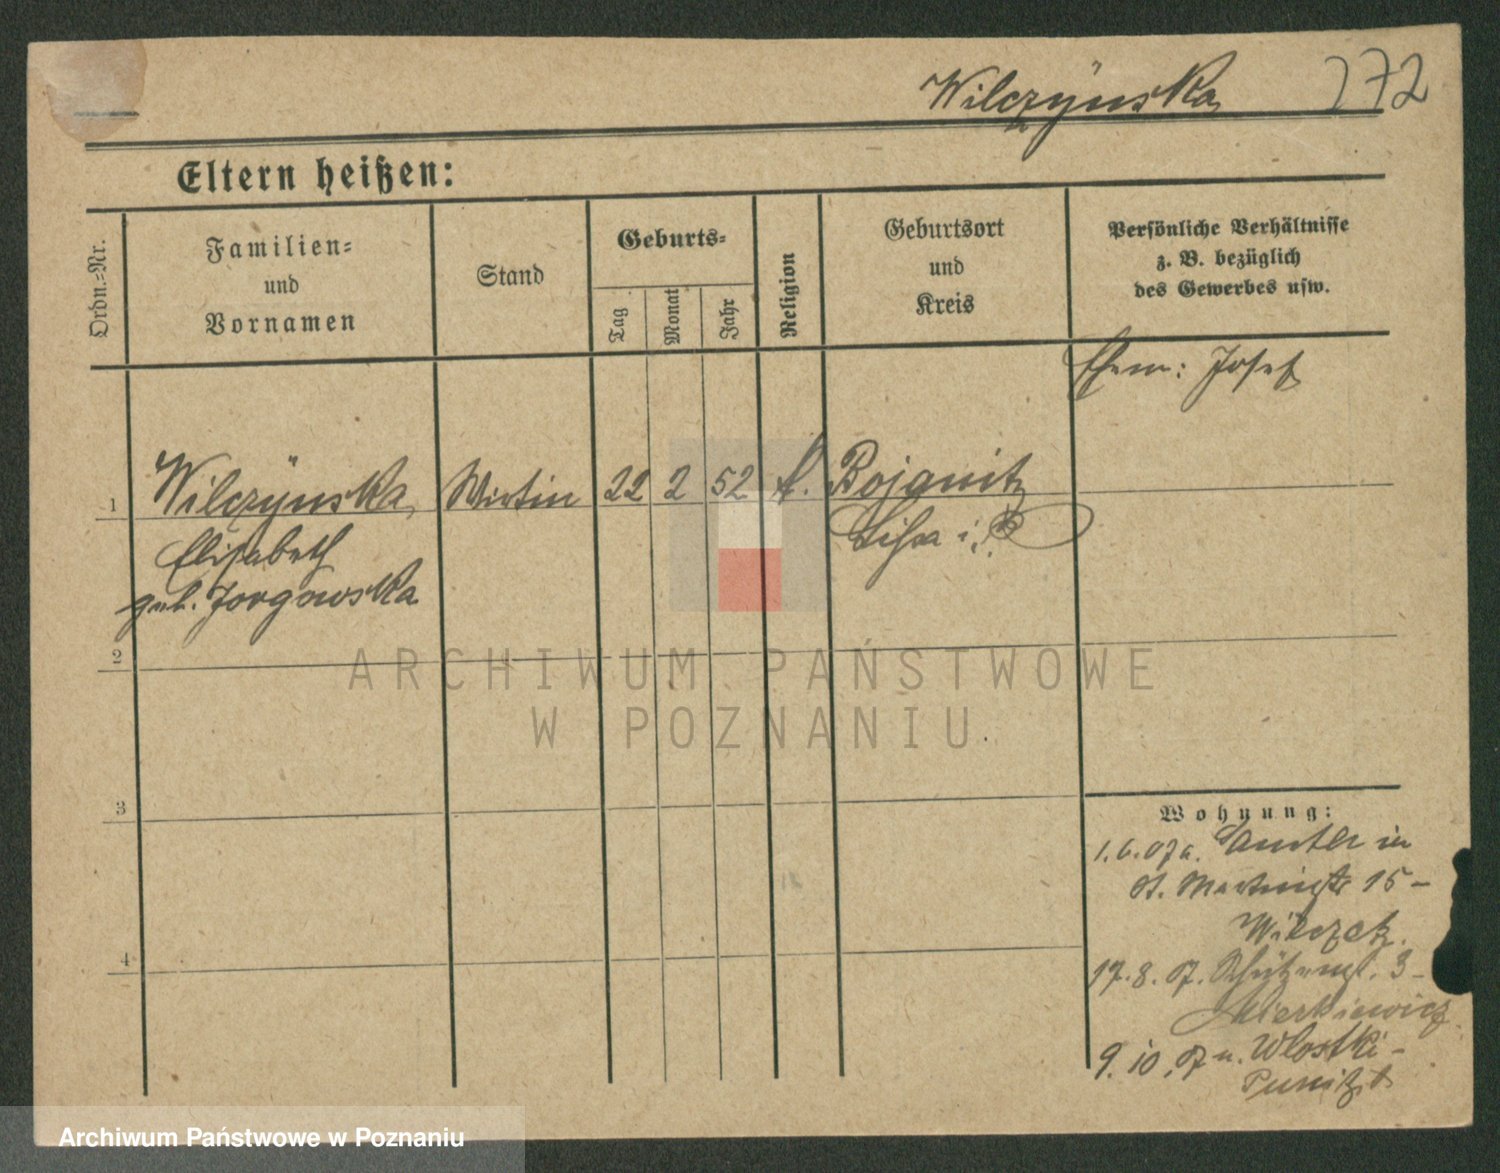 Wilczÿnska 272
Eltern heißen:
Ordn.-Nr.
Familien-
und
Vornamen
Stand
Geburts-
Tag
Monat
Jahr
Religion
Geburtsort
und
Kreis
Persönliche Verhältnisse
z. B. bezüglich
des Gewerbes usw.
Ehem: Josef
1 Wilczÿnska Wirtin 22 2 52 k. Bojanitz
Elisabeth Lissa i. P.
geb. Jorgowska
2
3
4
Wohnung:
1.6.07 a. Samter in
St. Martinstr 15 -
Wilczek.
17.8.07. Schützenst. 3 -
9.10.07 n.
ARCHIWUM PAŃSTWOWE
W POZNANIU
Archiwum Państwowe w Poznaniu